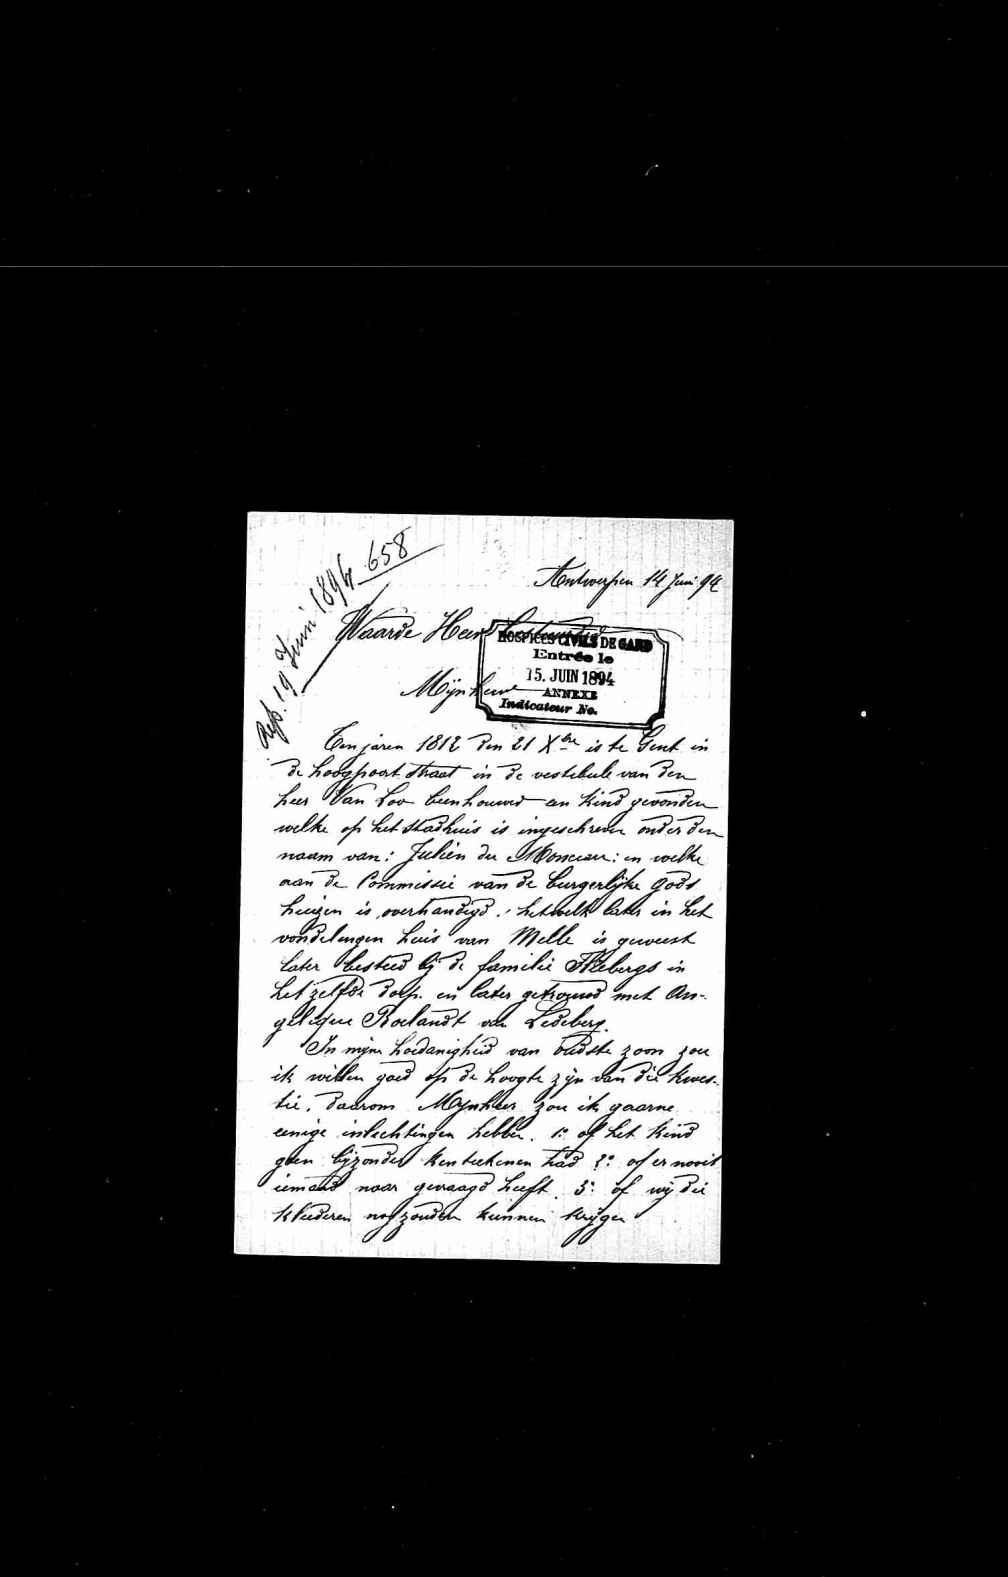 658
Rép. 19 Juin 1894
Antwerpen 14 Juni 94
Waarde Heer
HOSPICES CIVILS DE GAND
Entrée le
15. JUIN 1894
ANNEXE
Indicateur No.
Mijnheer
Ten jaren 1812 den 21 Xbre is te Gent in
de hoogpoort straat in de vestibule van den
heer Van Loo beenhouwer een kind gevonden
welke op het stadhuis is ingeschreven onder den
naam van: Julien du Monceau: en welke
aan de Commissie van de burgerlijke Gods
huizen is overhandigd. hetwelk later in het
vondelingen huis van Melle is geweest
later besteed bij de familie in
het zelfde dorp. en later getrouwd met An-
gelique Roelandt van Ledeberg.
In mijne hoedanigheid van oudste zoon zou
ik willen goed op de hoogte zijn van die kwes-
tie, daarom Mijnheer zou ik gaarne
eenige inlichtingen hebben. 1° of het kind
geen bijzonder kenteekenen had 2° of er nooit
iemand naar gevraagd heeft. 3° of wij die
kleederen nog zouden kunnen krijgen